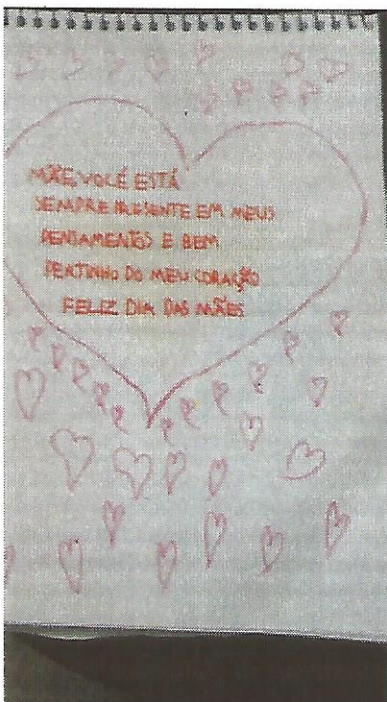 MÃE, VOCÊ ESTÁ
SEMPRE PRESENTE EM MEUS
PENSAMENTOS E BEM
PERTINHO DO MEU CORAÇÃO
FELIZ DIA DAS MÃES